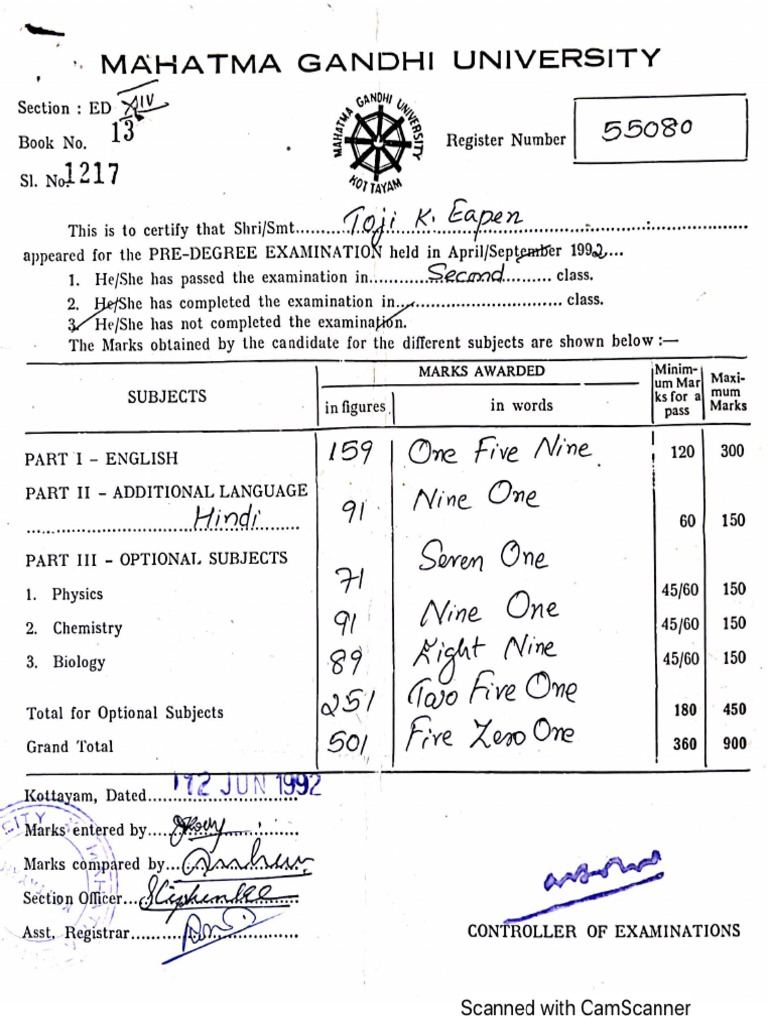 MAHATMA GANDHI UNIVERSITY
Section : ED XIV
Book No. 13
Sl. No. 1217
MAHATMA GANDHI UNIVERSITY
KOTTAYAM
Register Number 55080
This is to certify that Shri/Smt. Toji K. Eapen
appeared for the PRE-DEGREE EXAMINATION held in April/September 1992
1. He/She has passed the examination in Second class.
2. He/She has completed the examination in class.
3. He/She has not completed the examination.
The Marks obtained by the candidate for the different subjects are shown below :—
SUBJECTS MARKS AWARDED Minim-um Mar ks for a pass Maxi-mum Marks
in figures in words
PART I - ENGLISH 159 One Five Nine 120 300
PART II - ADDITIONAL LANGUAGE
Hindi 91 Nine One 60 150
PART III - OPTIONAL SUBJECTS
1. Physics 71 Seven One 45/60 150
2. Chemistry 91 Nine One 45/60 150
3. Biology 89 Eight Nine 45/60 150
Total for Optional Subjects 251 Two Five One 180 450
Grand Total 501 Five Zero One 360 900
Kottayam, Dated 12 JUN 1992
Marks entered by
Marks compared by
Section Officer
Asst. Registrar
CONTROLLER OF EXAMINATIONS
Scanned with CamScanner